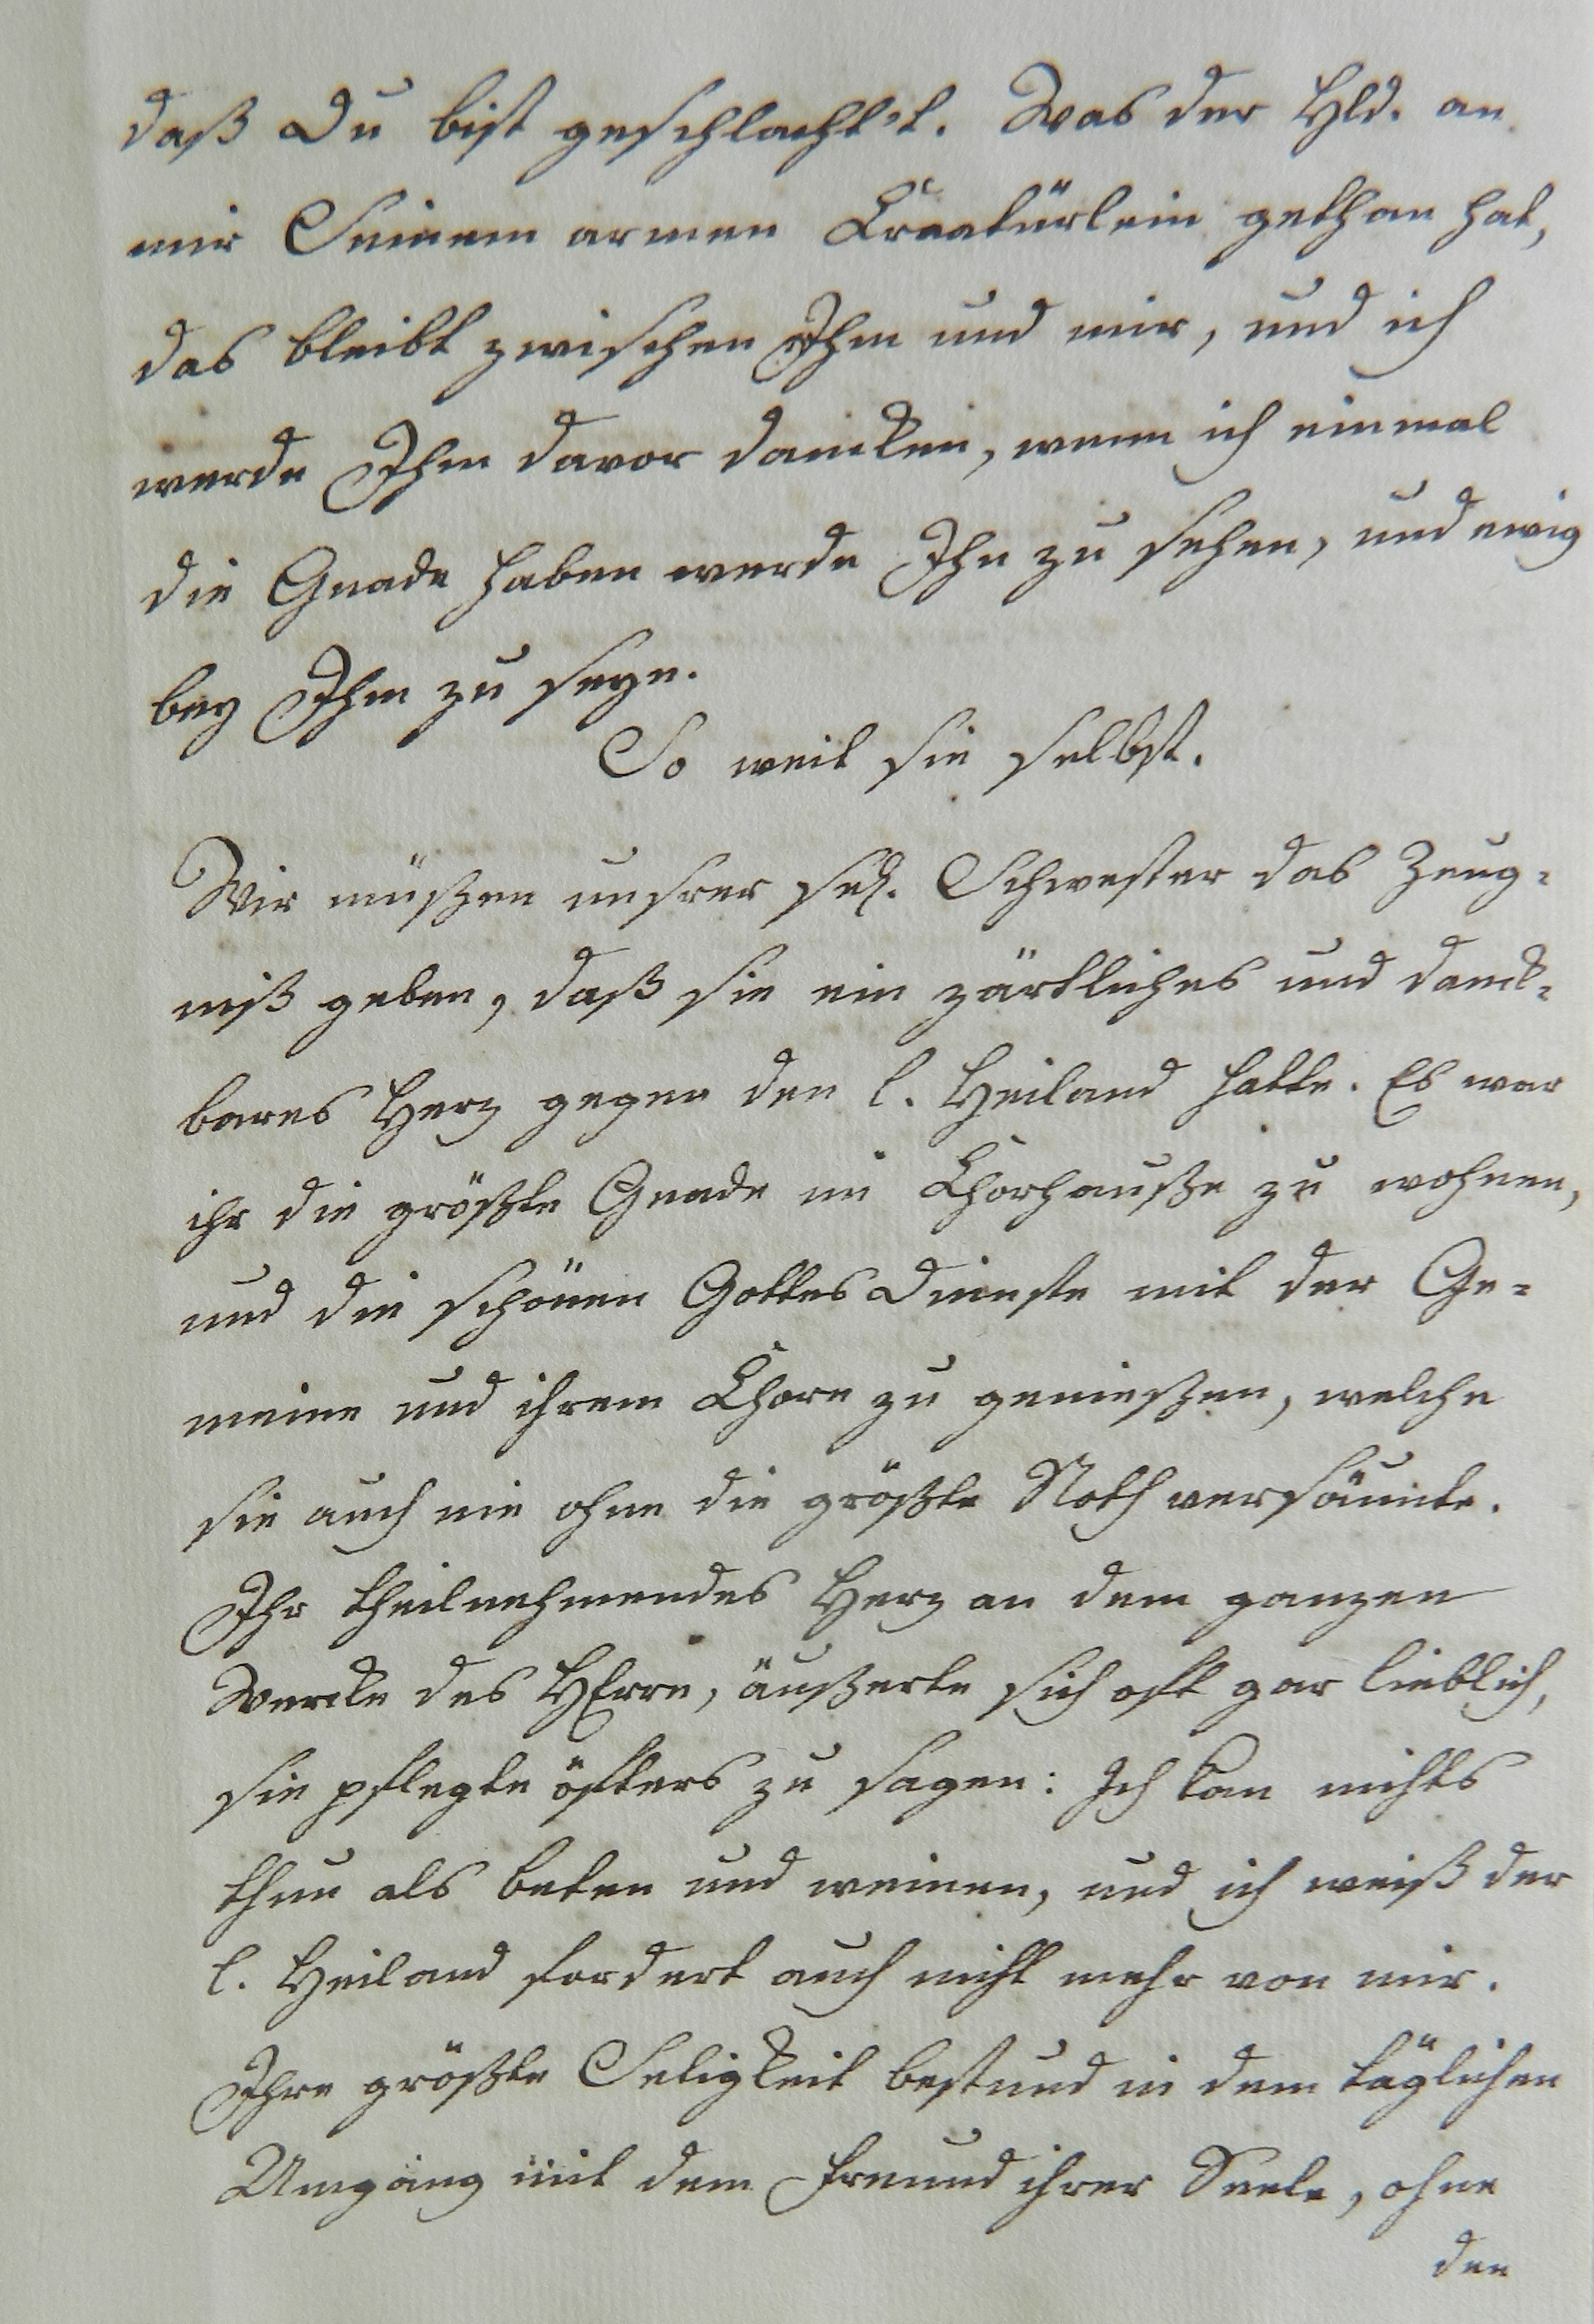 daß Du bist geschlacht't. Was der Hld. an
mir Seinem armen Creatürlein gethan hat,
das bleibt zwischen Ihm und mir, und ich
werde Ihm davor dancken, wenn ich einmal
die Gnade haben werde Ihn zu sehen, und ewig
bey Ihm zu seyn.
So weit sie selbst.
Wir müßen unsrer sel. Schwester das Zeug-
niß geben, daß sie ein zärtliches und danck-
bares Herz gegen den l. Heiland hatte. Es war
ihr die größte Gnade im Chorhauße zu wohnen,
und die schönen GottesDienste mit der Ge-
meine und ihrem Chore zu genießen, welche
sie auch nie ohne die größte Noth versäumte.
Ihr theilnehmendes Herz an dem ganzen
Wercke des HErrn, äußerte sich oft gar lieblich,
sie pflegte öfters zu sagen: Ich kan nichts
thun als beten und weinen, und ich weiß der
l. Heiland fordert auch nicht mehr von mir.
Ihre größte Seligkeit bestund in dem täglichen
Umgang mit dem Freund ihrer Seele, ohne
den